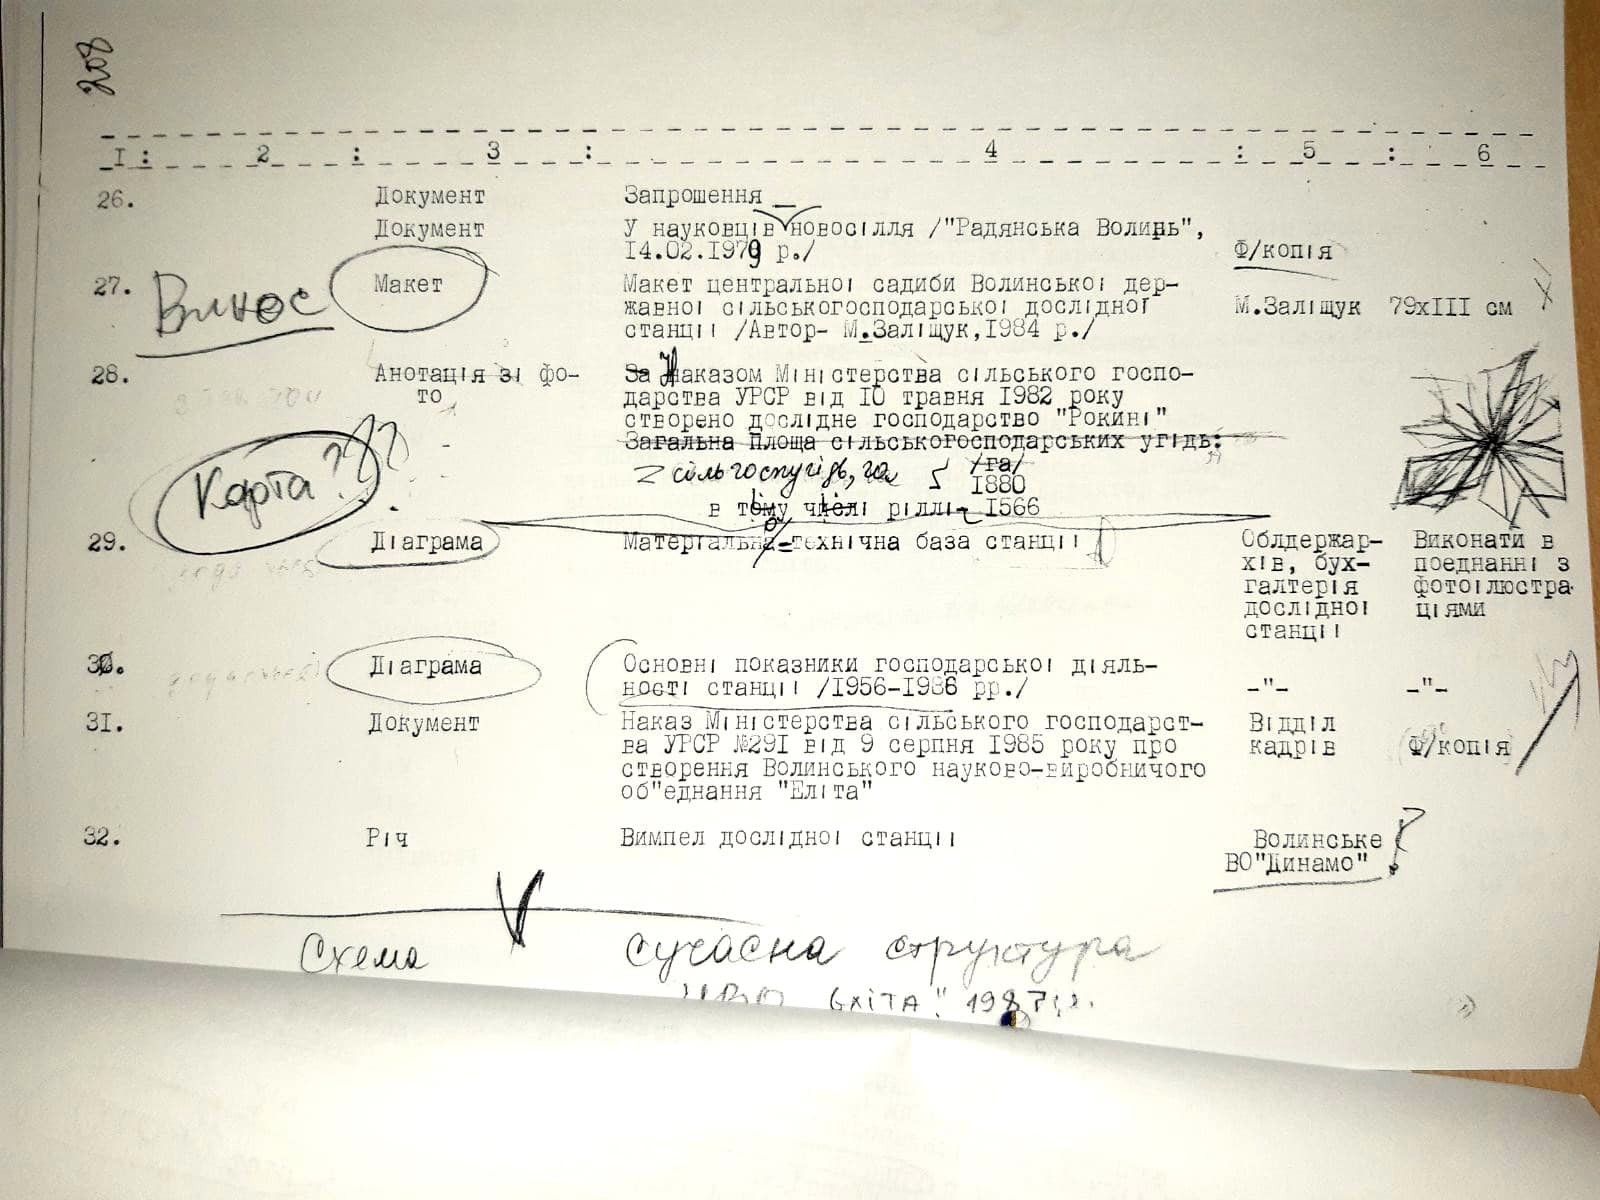 208
I : 2 : 3 : 4 : 5 : 6
26. Документ Запрошення
Документ У науковців новосілля /"Радянська Волинь",
14.02.1979 р./ Ф/копія
27. Винос Макет Макет центральної садиби Волинської дер-
жавної сільськогосподарської дослідної М.Заліщук 79хIII см
станції /Автор- М.Заліщук,1984 р./
28. Анотація зі фо- За Наказом Міністерства сільського госпо-
то дарства УРСР від 10 травня 1982 року
створено дослідне господарство "Рокині"
Загальна площа сільськогосподарських угідь:
Карта ??? сільгоспугідь, га /га/
1880
в тому числі ріллі - 1566
29. Діаграма Матеріально-технічна база станції Облдержар- Виконати в
хів, бух- поєднанні з
галтерія фотоілюстра-
дослідної ціями
станції
30. Діаграма Основні показники господарської діяль-
ності станції /1956-1986 рр./ -"- -"-
31. Документ Наказ Міністерства сільського господарст- Відділ
ва УРСР №291 від 9 серпня 1985 року про кадрів Ф/копія
створення Волинського науково-виробничого
об"єднання "Еліта"
32. Річ Вимпел дослідної станції Волинське ?
ВО"Динамо"
Схема Сучасна структура
НВО "Еліта" 1987 р.